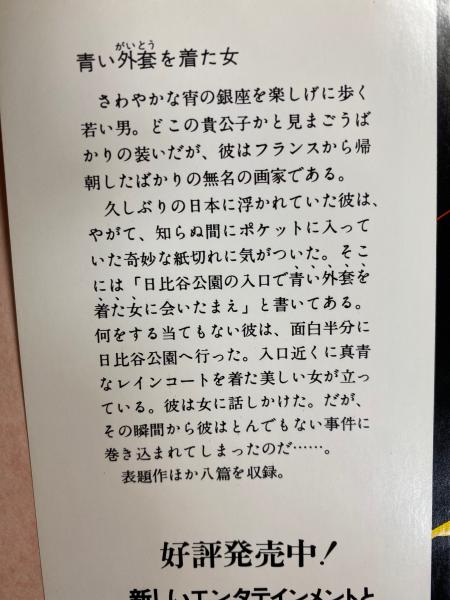 がいとう
青い外套を着た女
さわやかな宵の銀座を楽しげに歩く
若い男。どこの貴公子かと見まごうば
かりの装いだが、彼はフランスから帰
朝したばかりの無名の画家である。
久しぶりの日本に浮かれていた彼は、
やがて、知らぬ間にポケットに入って
いた奇妙な紙切れに気がついた。そこ
には「日比谷公園の入口で青い外套を
着た女に会いたまえ」と書いてある。
何をする当てもない彼は、面白半分に
日比谷公園へ行った。入口近くに真青
なレインコートを着た美しい女が立っ
ている。彼は女に話しかけた。だが、
その瞬間から彼はとんでもない事件に
巻き込まれてしまったのだ……。
表題作ほか八篇を収録。
好評発売中!
新しいエンタテインメントと